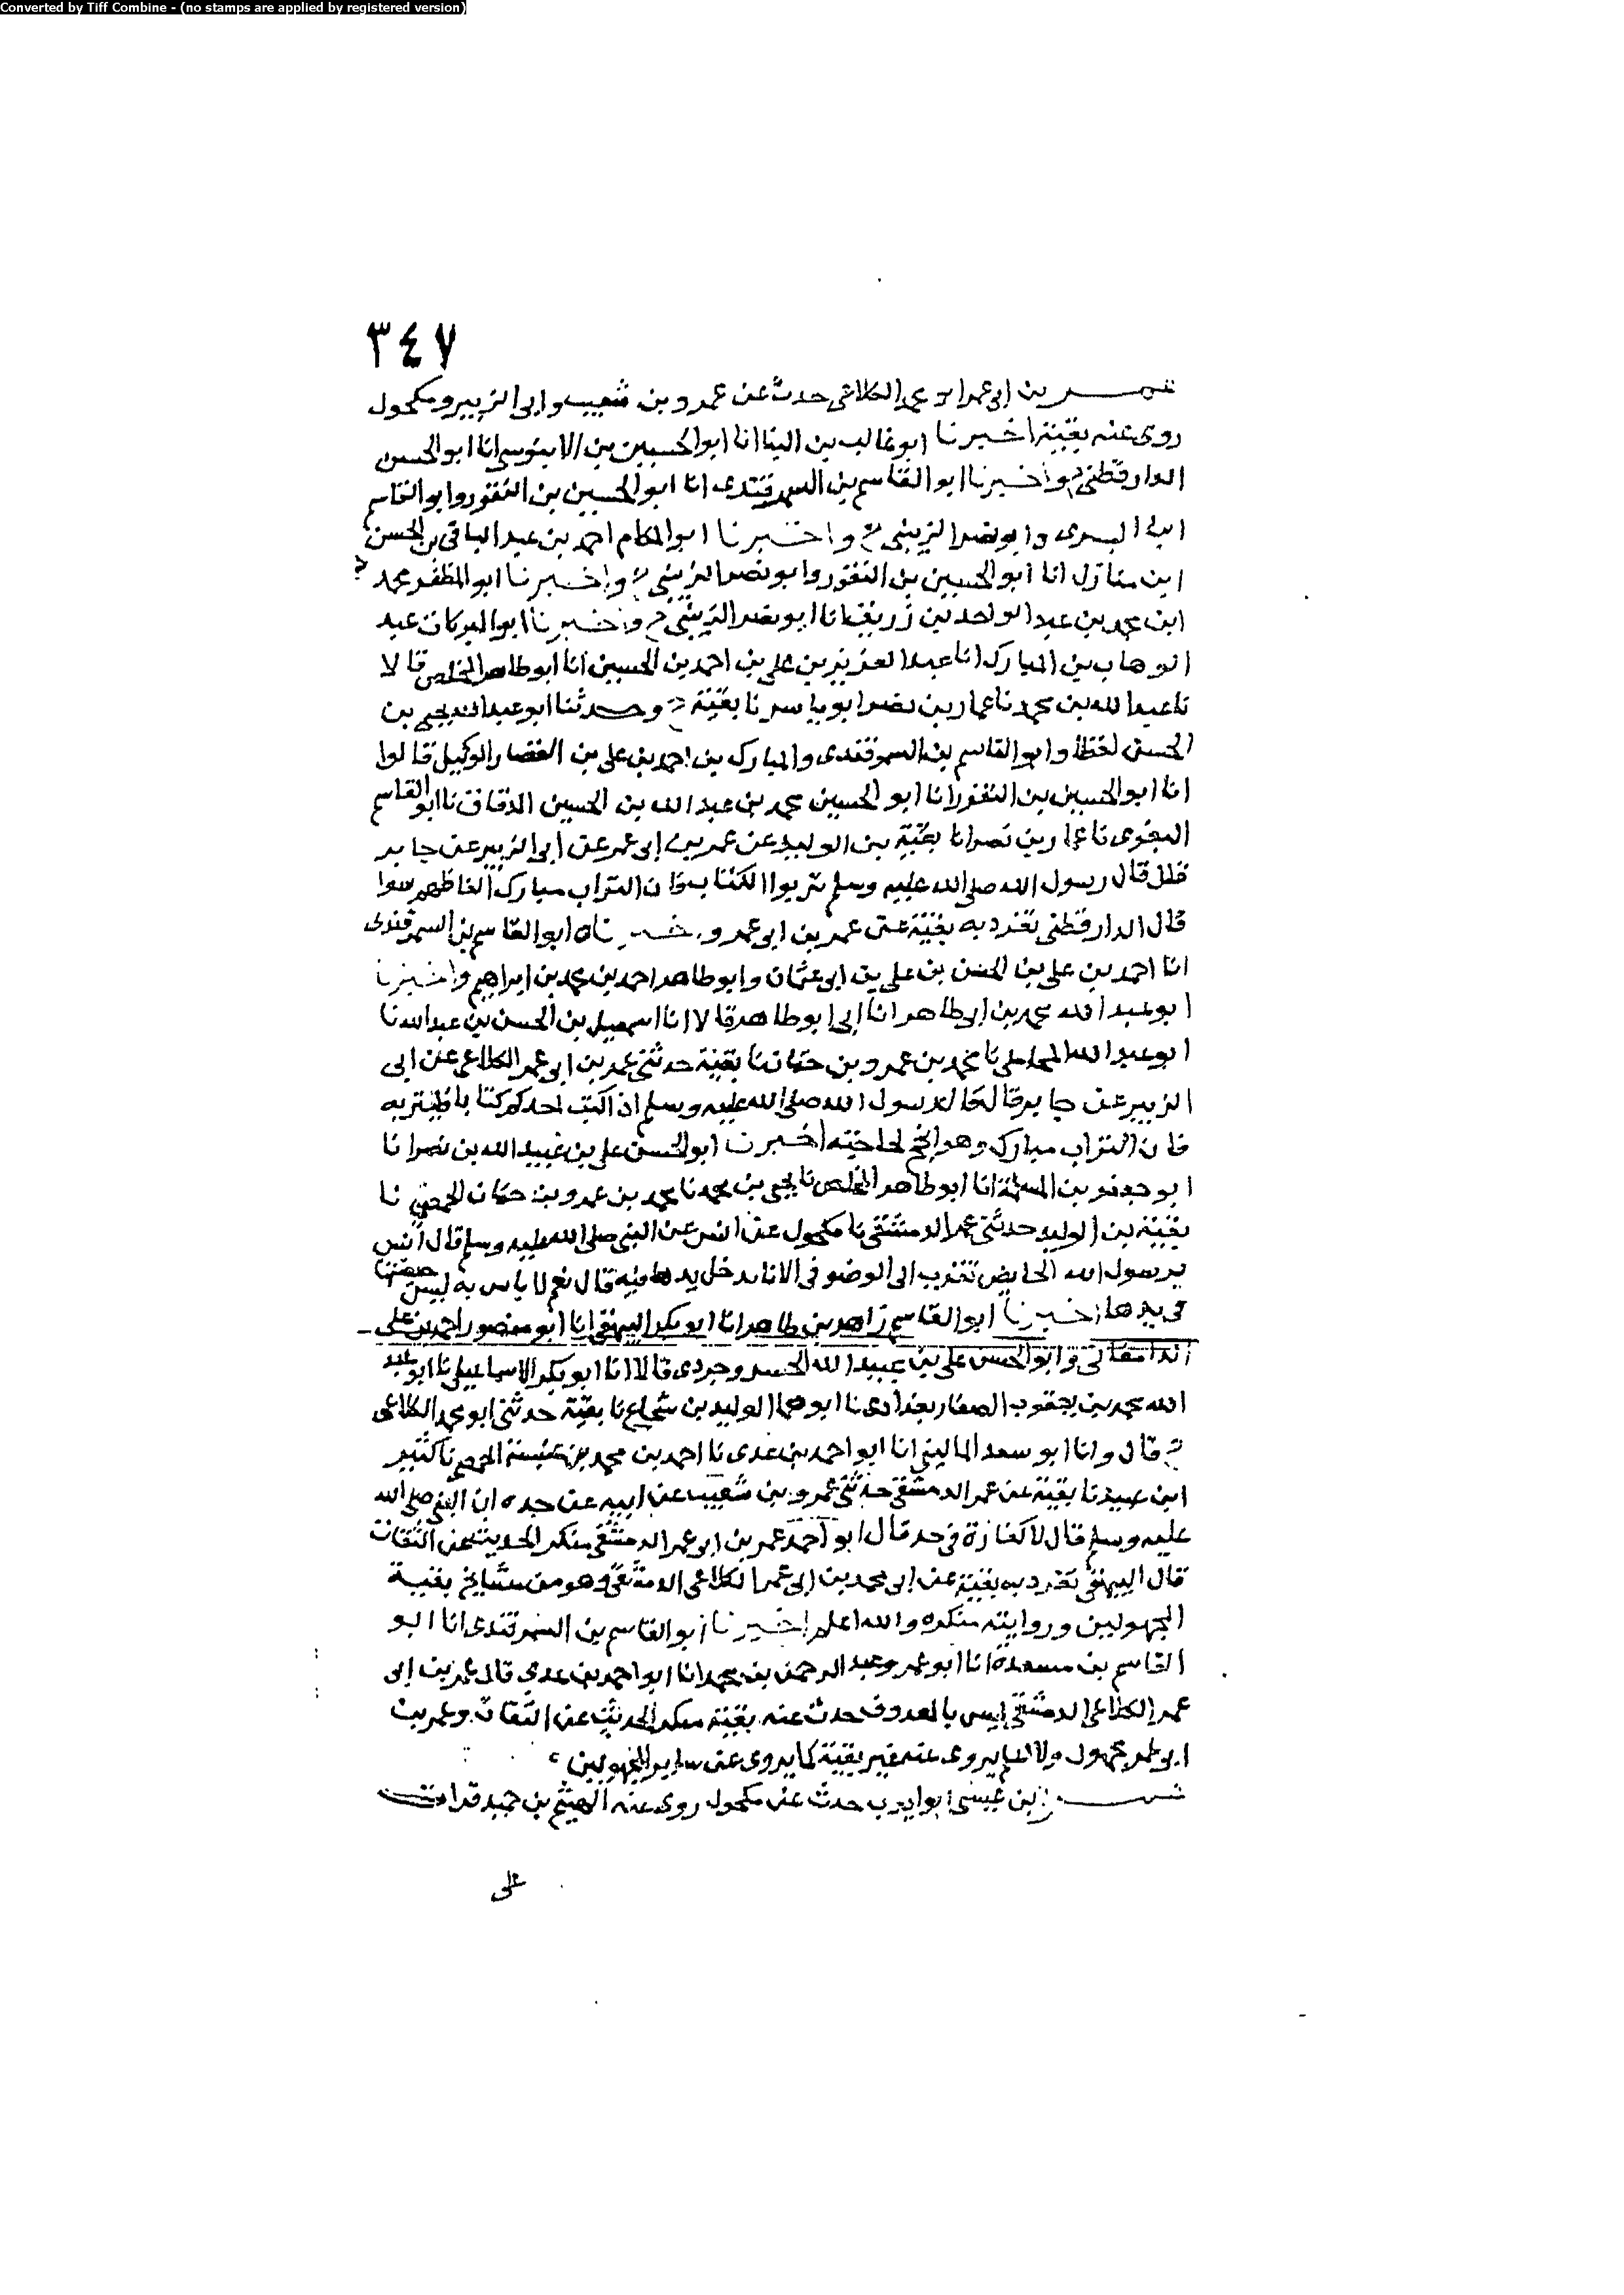 Converted by Tiff Combine - (no stamps are applied by registered version)
٣٤٧
عمر بن ابى عمر ابو محمد الكلاعى حدث عن عمرو بن شعيب وابى الزبير ومكحول
روى عنه بقية اخبرنا ابو غالب بن البنا انا ابو الحسين بن الابنوسى انا ابو الحسن
الدارقطنى ح واخبرنا ابو القاسم بن السمرقندى انا ابو الحسين بن النقور وابو القاسم
ابن البسرى وابو نصر الزينبى ح واخبرنا ابو المكارم احمد بن عبد الباقى بن الحسن
ابن منازل انا ابو الحسين بن النقور وابو نصر الزينبى ح واخبرنا ابو المظفر محمد
ابن محمد بن عبد الواحد بن زريق انا ابو نصر الزينبى ح واخبرنا ابو البركات عبد
الوهاب بن المبارك انا عبد العزيز بن على بن احمد بن الحسين انا ابو طاهر المخلص قالا
نا عبد الله بن محمد نا عمار بن نصر ابو ياسر نا بقية ح وحدثنا ابو عبد الله يحيى بن
الحسن لفظا وابو القاسم بن السمرقندى والمبارك بن احمد بن على بن القصار الوكيل قالوا
انا ابو الحسين بن النقور انا ابو الحسين محمد بن عبد الله بن الحسين الدقاق نا ابو القاسم
البغوى نا عمار بن نصر نا بقية بن الوليد عن عمر بن ابى عمر عن ابى الزبير عن جابر
قال قال رسول الله صلى الله عليه وسلم تربوا الكتاب فان التراب مبارك الفاظهم سوا
قال الدارقطنى تفرد به بقية عن عمر بن ابى عمر واخبرناه ابو القاسم بن السمرقندى
انا احمد بن على بن الحسن بن على بن ابى عثمان وابو طاهر احمد بن محمد بن ابراهيم واخبرنا
ابو عبد الله محمد بن ابى طاهر انا ابى ابو طاهر قالا انا اسمعيل بن الحسن بن عبد الله نا
ابو عبد الله المحاملى نا محمد بن عمرو بن حنان نا بقية حدثنى عمر بن ابى عمر الكلاعى عن ابى
الزبير عن جابر قال قال رسول الله صلى الله عليه وسلم اذا كتب احدكم كتابا فليتربه
فان التراب مبارك وهو انجح لحاجته اخبرنا ابو الحسن على بن عبيد الله بن نصر انا
ابو جعفر بن المسلمة انا ابو طاهر المخلص نا يحيى بن محمد نا محمد بن عمرو بن حنان الحمصى نا
بقية بن الوليد حدثنى عمر الدمشقى نا مكحول عن انس عن النبى صلى الله عليه وسلم قال انس
يرسول الله الحايض تقرب الى الوضو فى الانا تدخل يدها فيه قال نعم لا باس به ليس حيضتها
فى يدها اخبرنا ابو القاسم زاهد بن طاهر انا ابو بكر البيهقى انا ابو منصور احمد بن على
الدامغانى وابو الحسن على بن عبيد الله الخسروجردى قالا انا ابو بكر الاسماعيلى نا ابو عبد
الله محمد بن يعقوب الصفار بغدادى نا ابو همام الوليد بن شجاع نا بقية حدثنى ابو محمد الكلاعى
ح قال وانا ابو سعد المالينى انا ابو احمد بن عدى نا احمد بن محمد بن عنبسة الحمصى نا كثير
ابن عبيد نا بقية عن عمر الدمشقى حدثنى عمرو بن شعيب عن ابيه عن جده ان النبى صلى الله
عليه وسلم قال لا كفارة فى حد قال ابو احمد عمر بن ابى عمر الدمشقى منكر الحديث عن الثقات
قال البيهقى تفرد به بقية عن ابى محمد بن ابى عمر الكلاعى الدمشقى وهو من مشايخ بقية
المجهولين وروايته منكره والله اعلم اخبرنا ابو القاسم بن السمرقندى انا ابو
القاسم بن مسعدة انا ابو عمرو عبد الرحمن بن محمد انا ابو احمد بن عدى قال عمر بن ابى
عمر الكلاعى الدمشقى ليس بالمعروف حدث عنه بقية منكر الحديث عن الثقات وعمر بن
ابى عمر مجهول ولا اعلم يروى عنه غير بقية كما يروى عن ساير المجهولين
بن عيسى ابو ايوب حدث عن مكحول روى عنه الهيثم بن حميد قرات
على